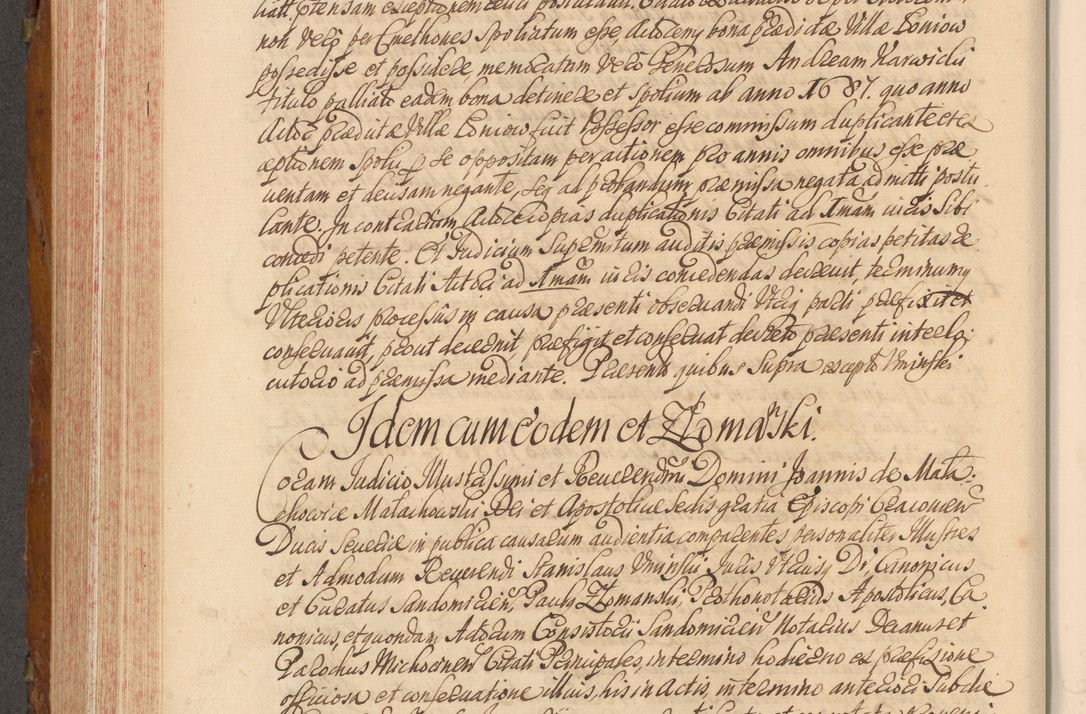 non Vero per Conethones Spoliatum esse Actorem bona prædictæ Villæ Coniow
possedisse et possidere, memoratum Vero Generosum Andream Karwicki
titulo palliato eadem bona detinere et spolium ab anno 1687. quo anno
Actor prædictæ Villæ Coniow fuit Possessor esse commissum duplicante et ex
æptionem Spolii p se oppositam per actionem pro annis omnibus esse præ
uentam et decisam negante, seq ad probandum præmissa negata admitti postu
lante. In contrarium Actore copias duplicationis Citati ad Amam iuris sibi
concedi petente. Et Judicium Supremitum auditis præmissis copias petitas de
plicationis Citati Actori ad Amam iuris concedendas decreuit terminumq
Vlterioris processus in causa præsenti obseruandi Vtriq parti præfixit et
conseruauit, prout decernit, præfigit et conseruat decreto præsenti interlo
cutorio ad præmissa mediante. Præsentib quibus Supra excepto Vminski
Idem cum eodem et Złomański.
Coram Judicio Illustrissimi et Reuerendmi Domini Joannis de Mała:
chowice Małachowski Dei et Apostolicæ Sedis gratia Episcopi Cracouien
Ducis Seueriæ in publica causarum audientia comparentes personaliter Illustres
et Admodum Reuerendi Stanislaus Vminski Juris Vtriusq Dr. Canonicus
et Curatus Sandomirien, Paulus Złomanski, Prothonotarius Apostolicus, Ca
nonicus, et quondam Actorum Consistorii Sandomirien Notarius Decanus et
Parochus Michocinen Citati Principales, in termino hodierno ex præfixione
officiosa et conseruatione illius, his in Actis, in termino anteriori Sub die